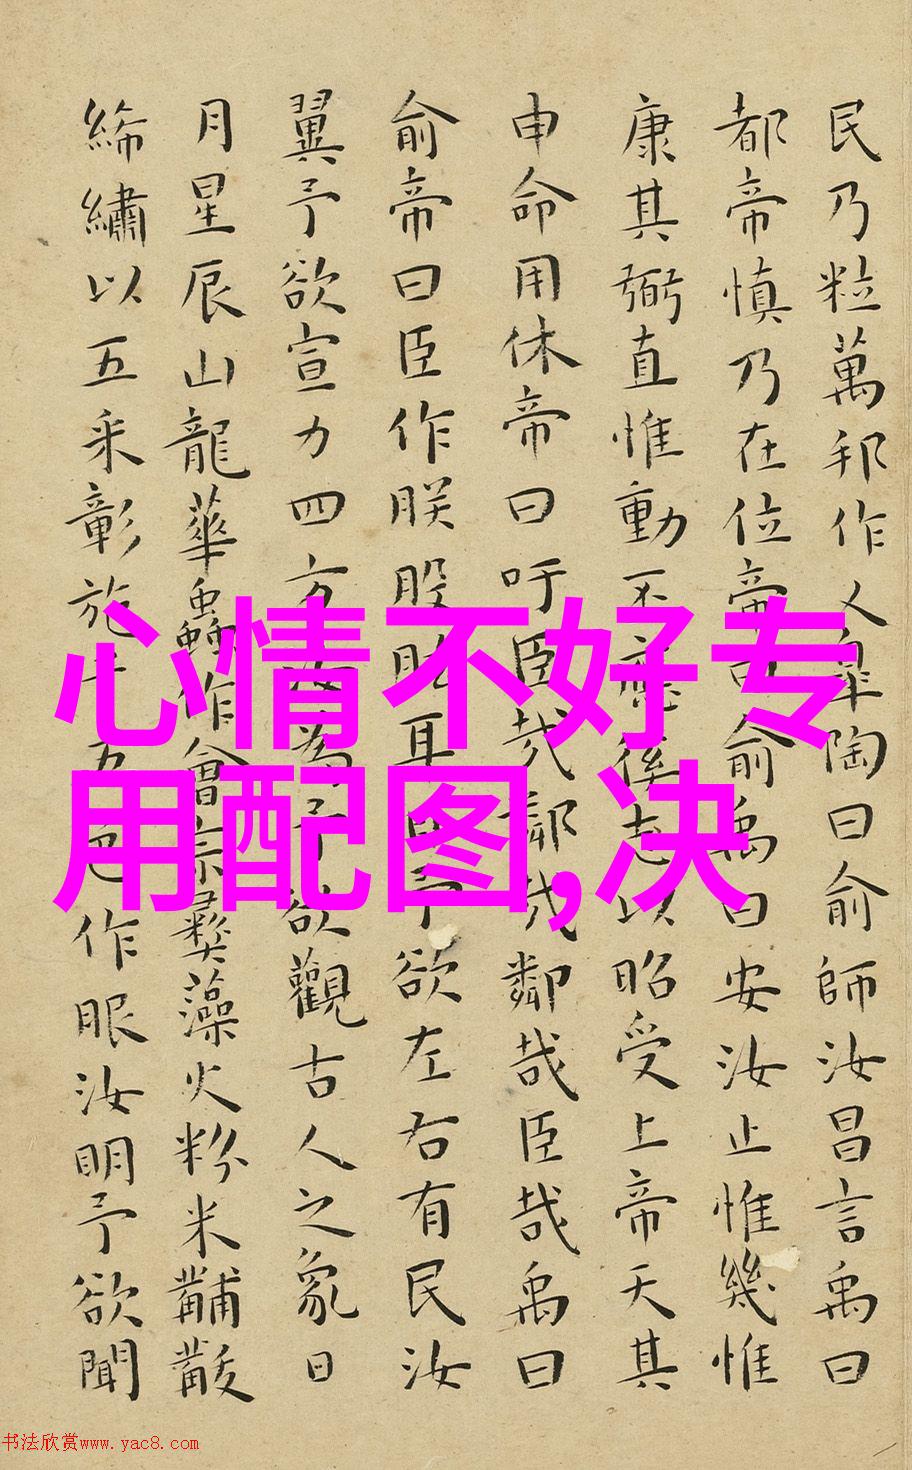 民乃粒萬邦作乂皋陶曰俞師汝昌言禹曰
都帝慎乃在位帝曰俞禹曰安汝止惟幾惟
康其弼直惟動不應後志以昭受上帝天其
申命用休帝曰吁臣哉鄰哉鄰哉臣哉禹曰
俞帝曰臣作朕股肱耳目予欲左右有民汝
翼予欲宣力四方汝為予欲觀古人之象日
月星辰山龍華蟲作會宗彝藻火粉米黼黻
絺繡以五采彰施于五色作服汝明予欲聞
心情不好专
用配图,决
书法欣赏www.yac8.com